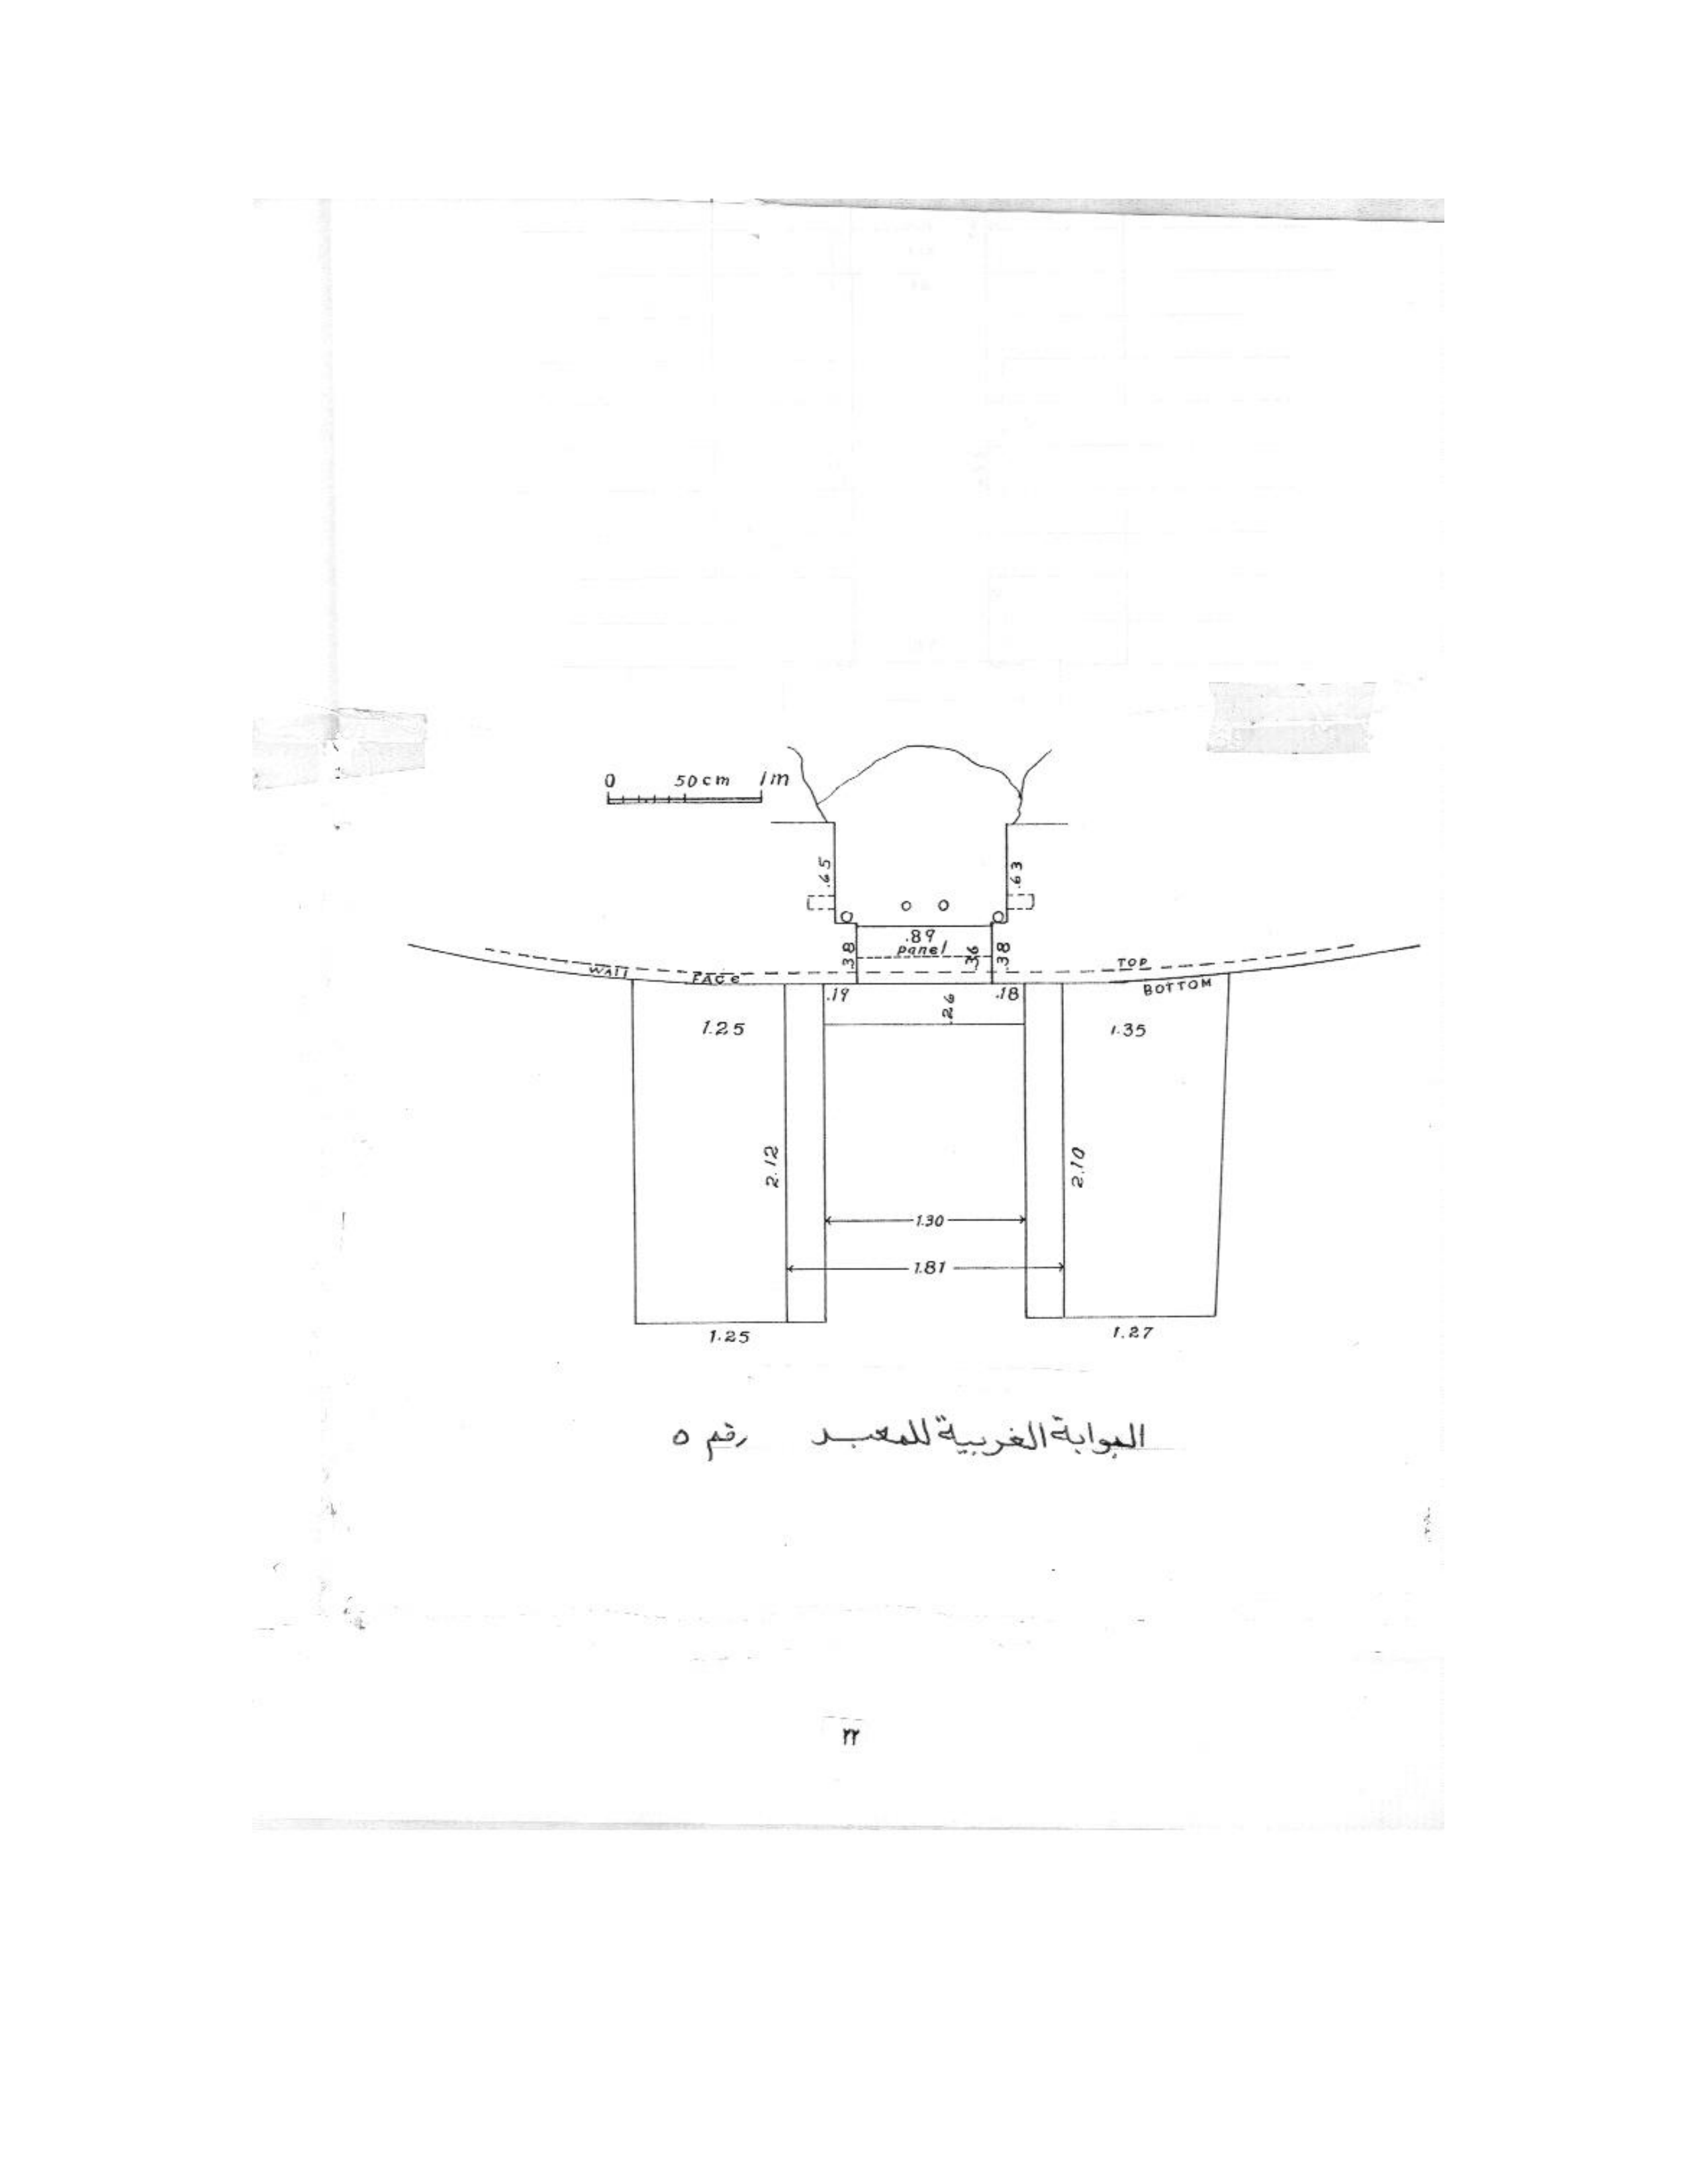 0 50cm 1m
.65
.63
.89
panel
.38
.36
.38
WALL FACE
TOP
BOTTOM
.19
.26
.18
1.25
1.35
2.12
2.10
1.30
1.81
1.25
1.27
البوابة الغربية للمعبد رقم ٥
٢٢